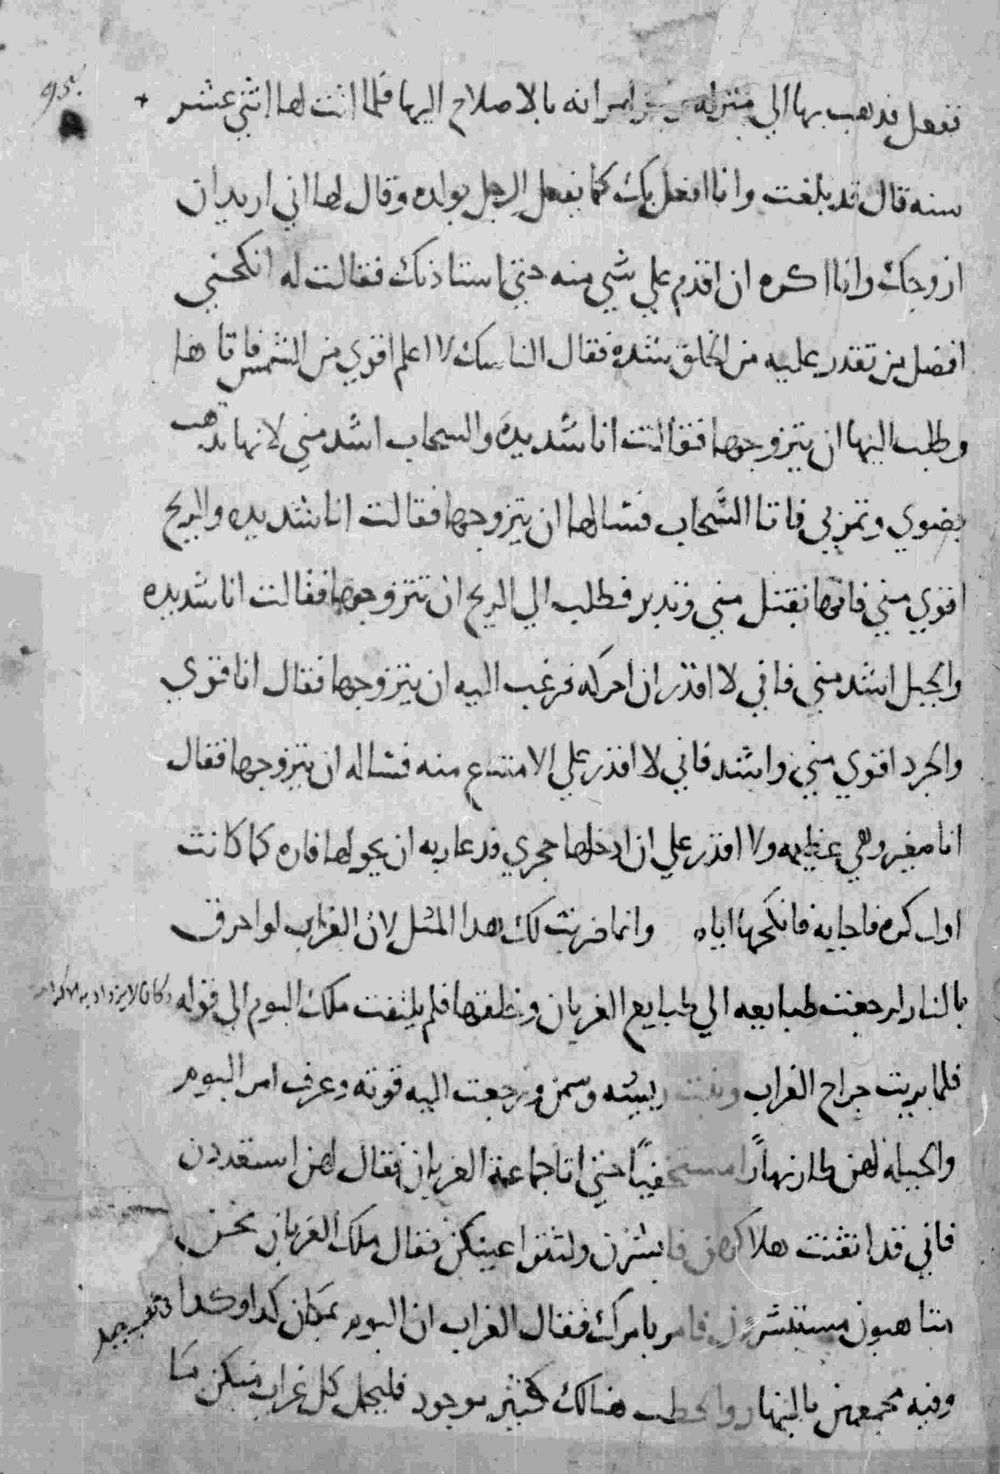 95.
ففعل فدهب بها الي منزله وامر امراته بالاصلاح اليها فلما اتت لها اثني عشر
سنه قال قد بلغت وانا افعل بك كما يفعل الرجل بولده وقال لها اني اريد ان
ازوجك وانا اكره ان اقدم علي شي منه حتي استاذنك فقالت له انكحني
افضل من تقدر عليه من الخلق شده فقال الناسك لا اعلم اقوي من الشمس فاتا هنا
وطلب اليها ان يتزوجها فقالت انا شديده والسحاب اشد مني لانها تدهب
بضوي وتمر بي فاتا السحاب فسالها ان يتزوجها فقالت انا شديده والريح
اقوي مني فانها تقبل مني وتدبر فطلب الي الريح ان تتزوجها فقالت انا شديده
والجبل اشد مني فاني لا اقدر ان احركه فرغب اليه ان يتزوجها فقال انا قوي
والجرد اقوي مني واشد فاني لا اقدر علي الامتناع منه فساله ان يتزوجها فقال
انا صغير وهي عظيمه ولا اقدر علي ان ادخلها حجري فدعا ربه ان يحولها فاره كما كانت
اول كره فاجابه فانكحها اياه وانما ضربت لك هدا المثل لان الغراب لو احرق
بالنار لرجعت طبايعه الي طبايع الغربان ونطقها فلم يلتفت ملك البوم الي قوله
فلما بريت جراح الغراب ونبت ريشه وسمن ورجعت اليه قوته وعرف امر البوم
والحيله لهن طار نهارًا مستخفيًا حتي اتا جماعة الغربان فقال لهن استعددن
فاني قد اتقنت هلاكهن فابشرن ولتقرا عينكن فقال ملك الغربان نحن
متاهبون مستبشرون فامر بامرك فقال الغراب ان البوم بمكان كدا وكدا
وفيه مجمعهن بالنهار والحطب هنالك كثير موجود فليحمل كل غراب منكن ما